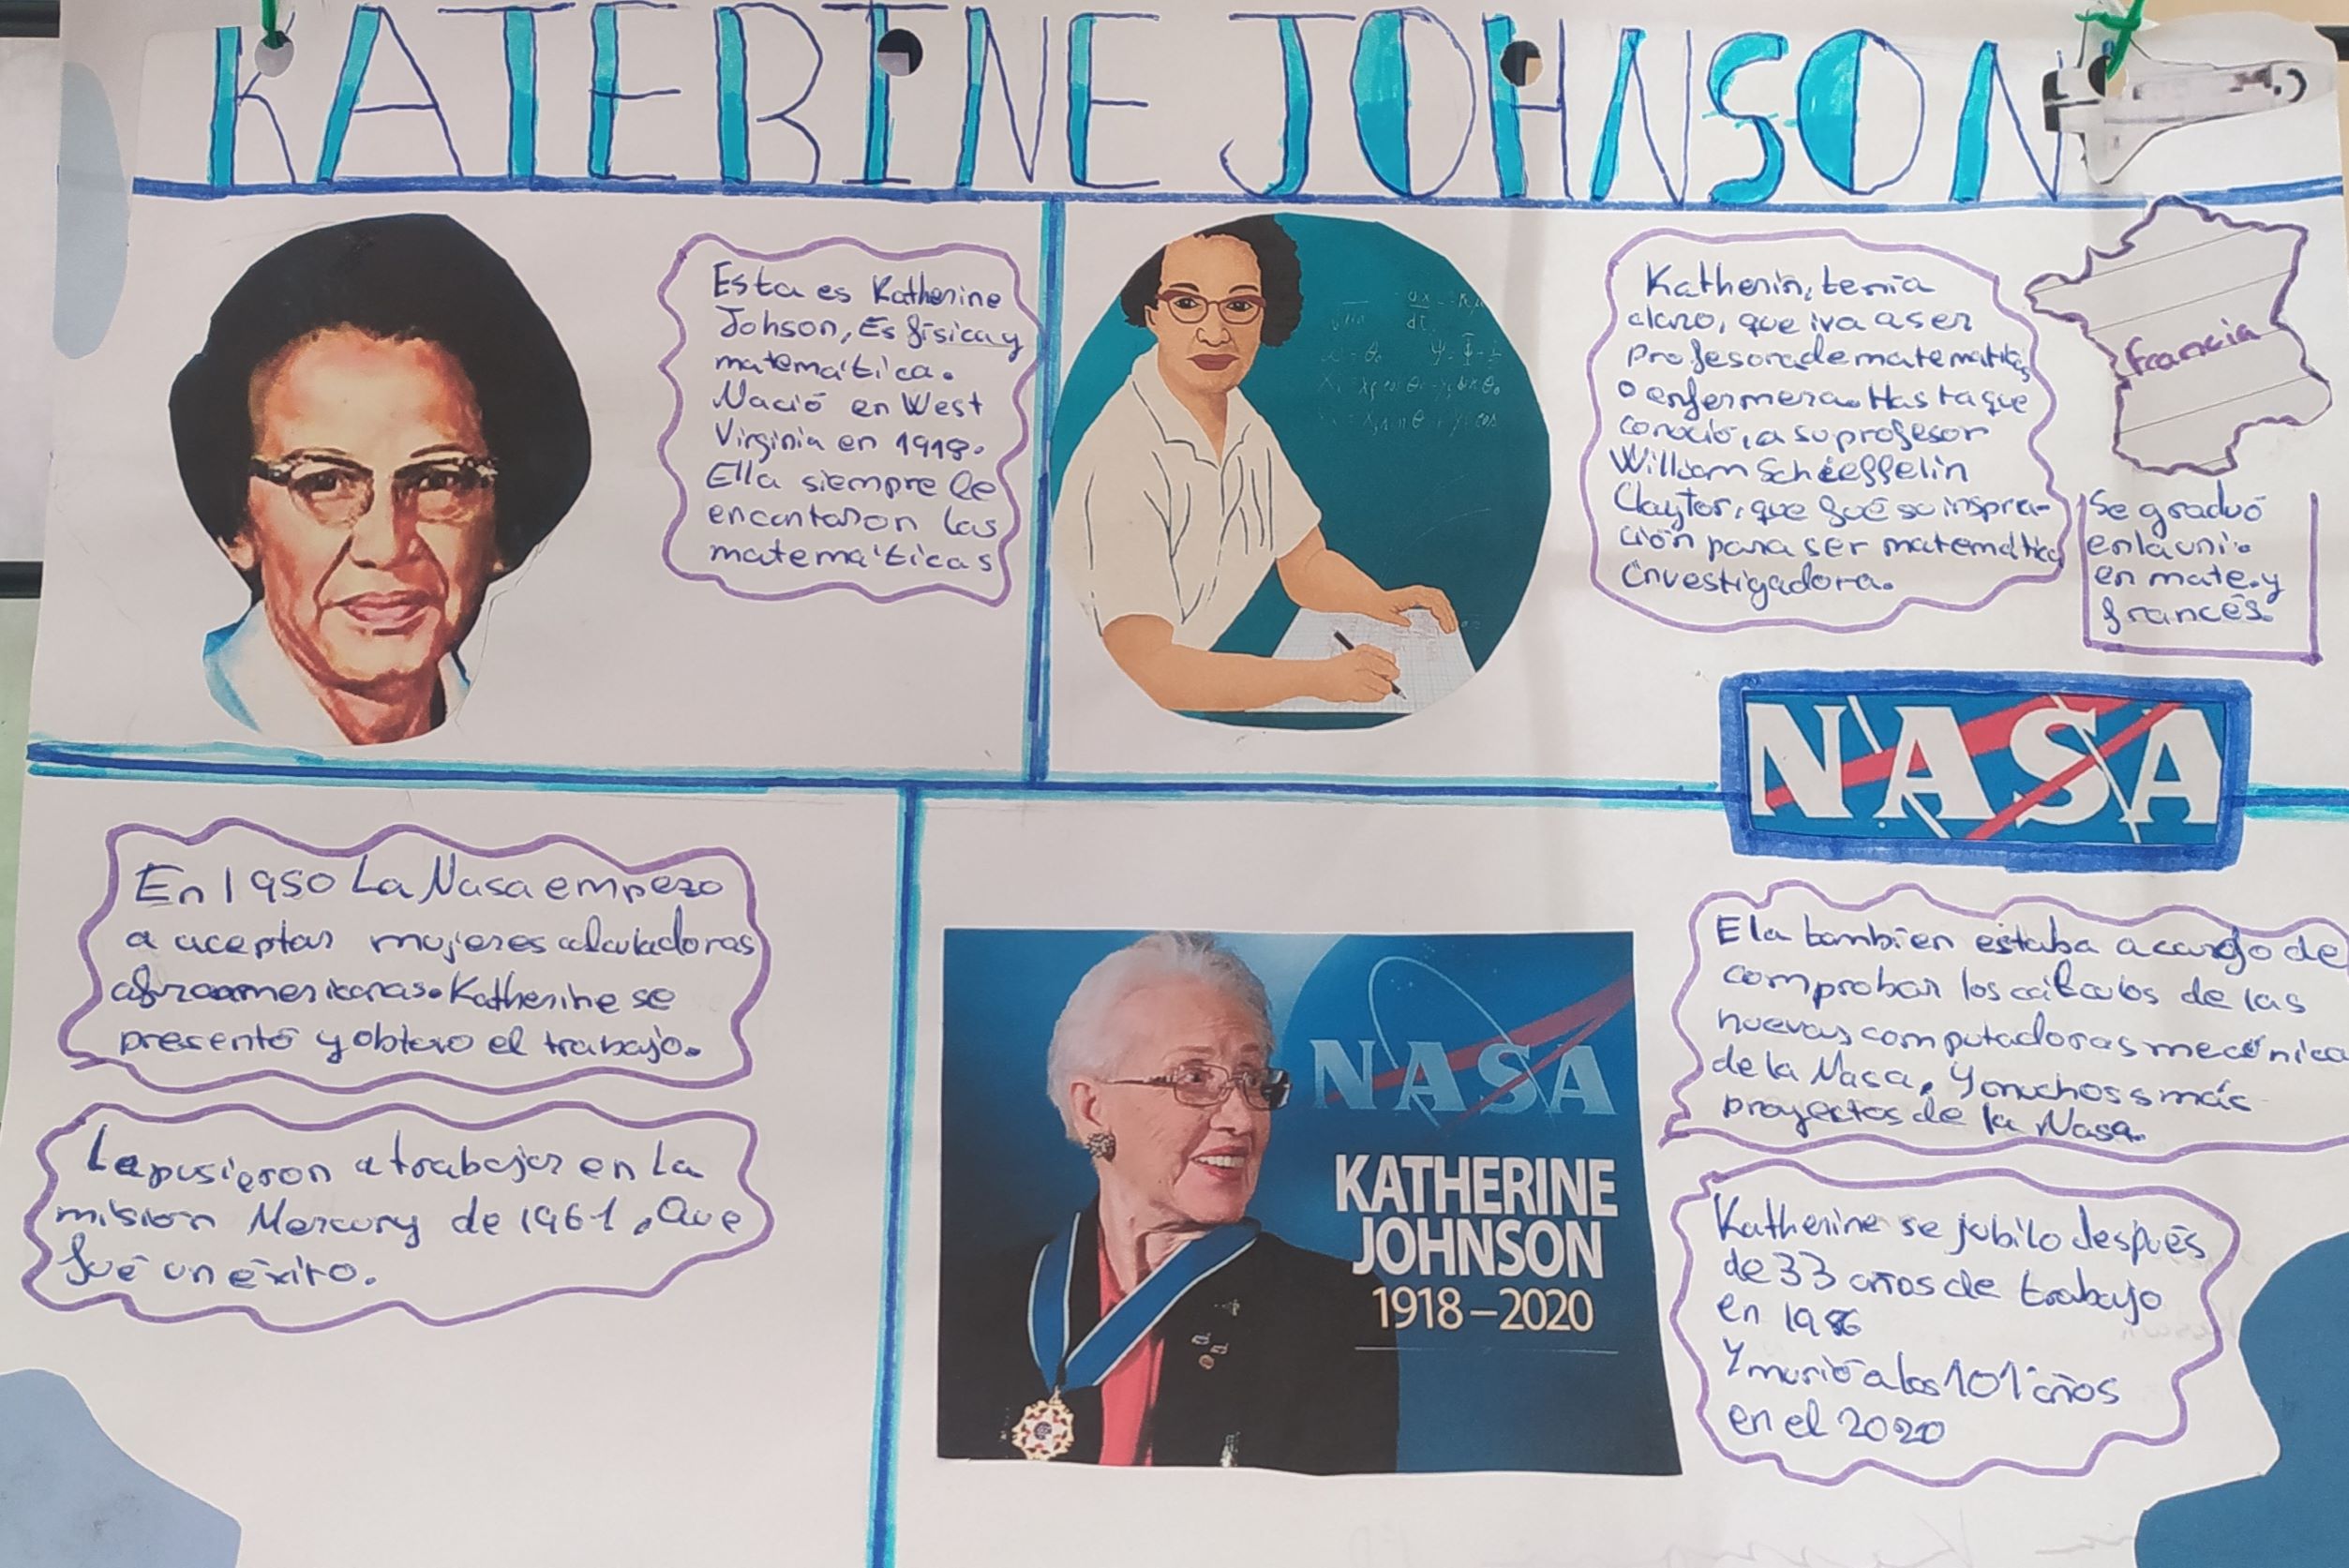 KATERINE JOHNSON
Esta es Katherine
Johson, Es física y
matemática.
Nació en West
Virginia en 1918.
Ella siempre le
encantaron las
matemáticas
Katherin, tenía
claro, que iva a ser
profesora de matemáticas
o enfermera. Hasta que
conoció, a su profesor
William Schieffelin
Claytor, que fué su inspra-
ción para ser matemática
investigadora.
Francia
Se graduó
en la uni.
en mate. y
francés.
NASA
En 1950 La Nasa empezo
a aceptar mujeres calculadoras
afroamericanas. Katherine se
presentó y obtuvo el trabajo.
La pusieron a trabajar en la
misión Mercury de 1961, Que
fué un éxito.
NASA
KATHERINE
JOHNSON
1918–2020
Ela tambien estaba a cargo de
comprobar los cálculos de las
nuevas computadoras mecánica
de la Nasa, Y muchos más
proyectos de la Nasa.
Katherine se jubilo después
de 33 años de trabajo
en 1986
Y murió a los 101 años
en el 2020